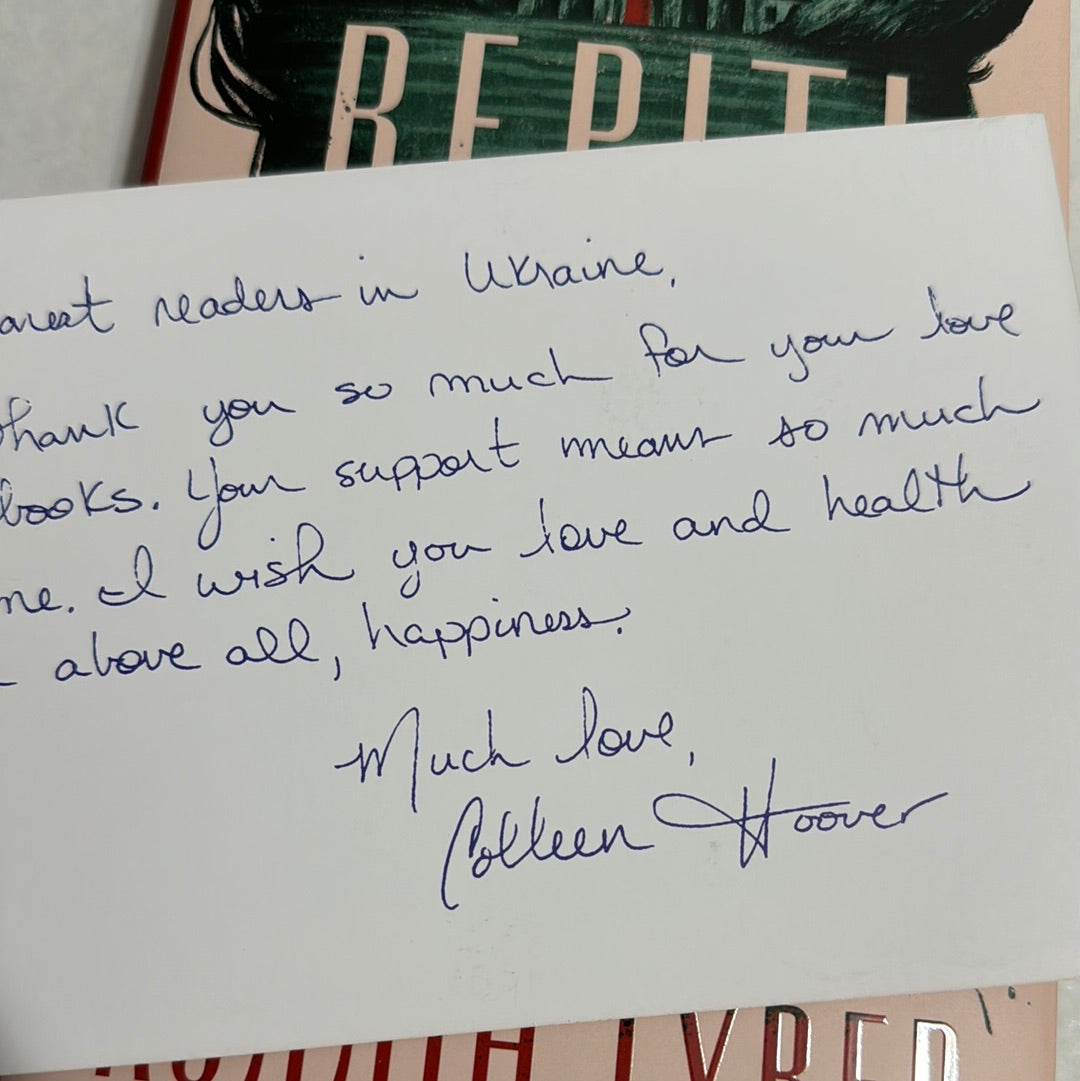 ВЕРІТІ
arest readers in Ukraine,
hank you so much for your love
books. Your support means so much
me. I wish you love and health
above all, happiness.
Much love,
Colleen Hoover
ГУВЕР